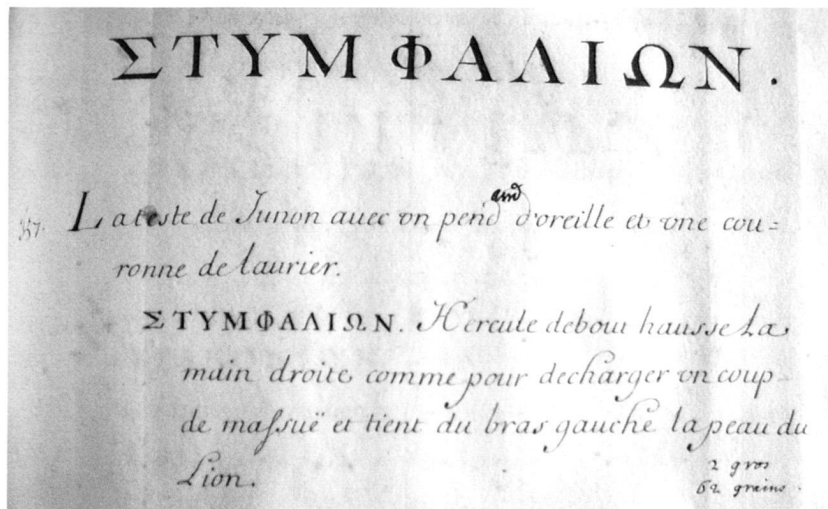 ΣΤΥΜΦΑΛΙΩΝ.
and
357. La teste de Junon auec vn pend d'oreille et vne cou=
ronne de laurier.
ΣΤΥΜΦΑΛΙΩΝ. Hercule debout hausse la
main droite comme pour decharger vn coup
de massuë et tient du bras gauche la peau du
Lion.
2 gros
62 grains.